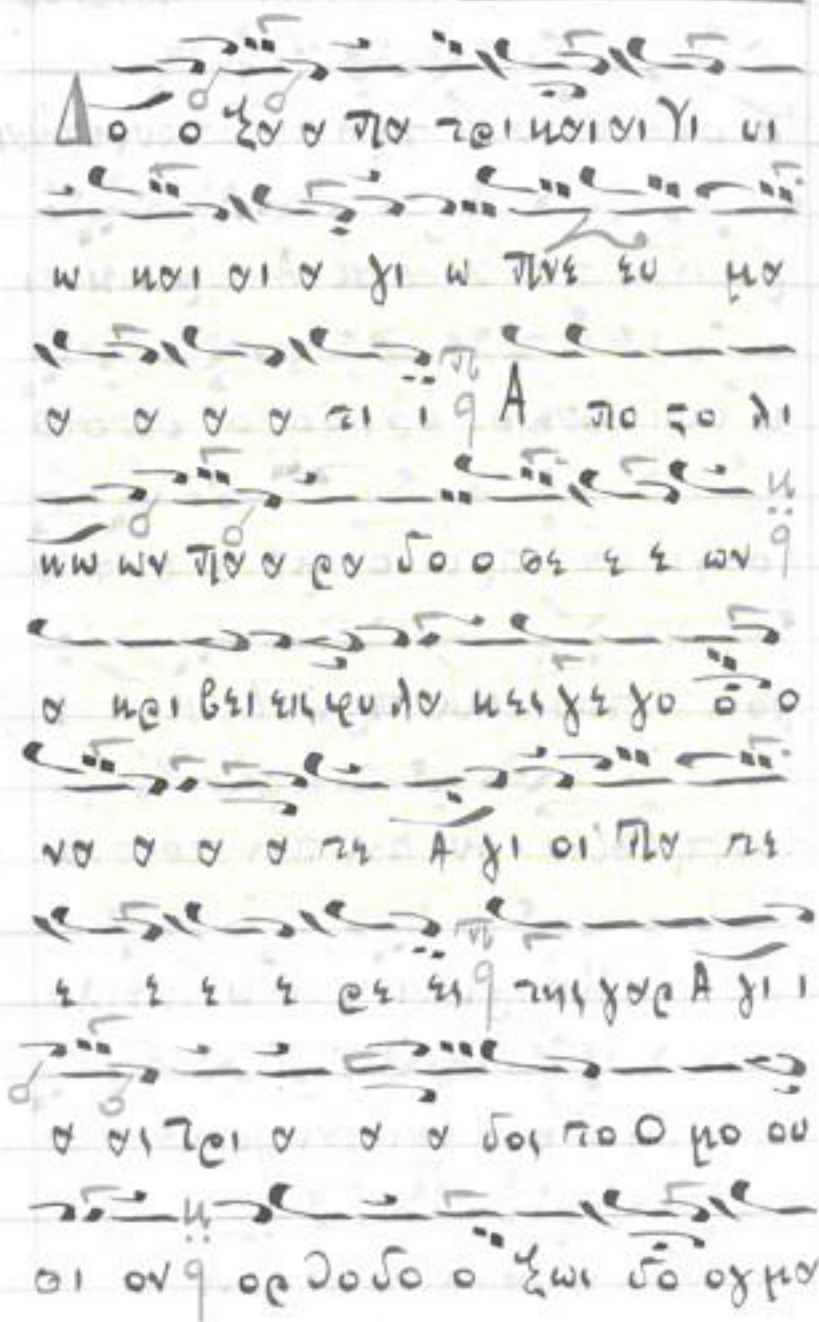 Δο ο ξα α πα τρι και αι Υι υι
ω και αι α γι ω πνε ευ μα
α α α α τι ι Α πο ϛο λι
κω ων πα α ρα δο ο σε ε ε ων
α κρι βει εις φυ λα κες γε γο ο ο
να α α α τε Α γι οι Πα τε
ε ε ε ε ρε ες της γαρ Α γι ι
α ας Τρι α α α δος το Ο μο ου
σι ον ορ θο δο ο ξως δο ογ μα